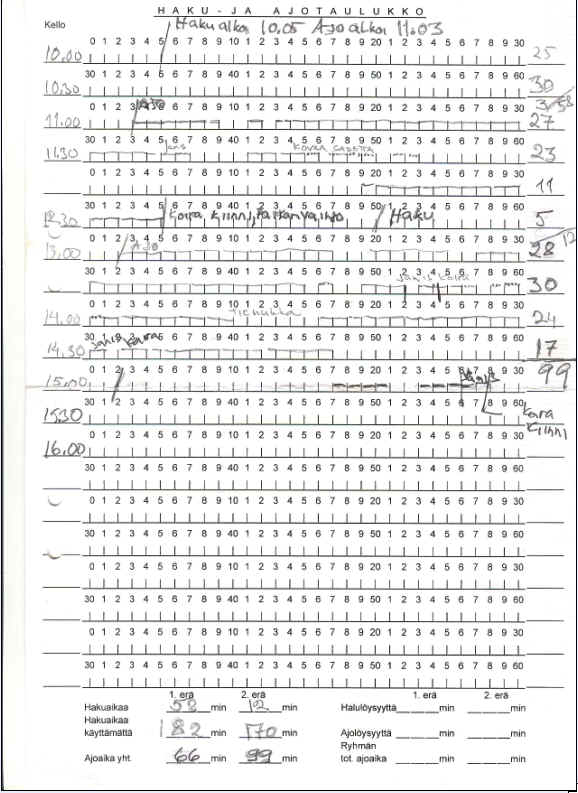 HAKU-JA AJOTAULUKKO
Haku alkoi 10.05 Ajo alkoi 11.03
Kello
0 1 2 3 4 5 6 7 8 9 10 1 2 3 4 5 6 7 8 9 20 1 2 3 4 5 6 7 8 9 30
10.00 25
30 1 2 3 4 5 6 7 8 9 40 1 2 3 4 5 6 7 8 9 50 1 2 3 4 5 6 7 8 9 60
10.30 30
0 1 2 3 Ajo 6 7 8 9 10 1 2 3 4 5 6 7 8 9 20 1 2 3 4 5 6 7 8 9 30 3/58
11.00 27
30 1 2 3 4 5 6 7 8 9 40 1 2 3 4 5 6 7 8 9 50 1 2 3 4 5 6 7 8 9 60
11.30 23
0 1 2 3 4 5 6 7 8 9 10 1 2 3 4 5 6 7 8 9 20 1 2 3 4 5 6 7 8 9 30
11
30 1 2 3 4 5 6 7 8 9 40 1 2 3 4 5 6 7 8 9 50 1 2 3 4 5 6 7 8 9 60
12.30 Koira kiinni, Haku 5
0 1 2 3 4 5 6 7 8 9 10 1 2 3 4 5 6 7 8 9 20 1 2 3 4 5 6 7 8 9 30 12
13.00 Ajo 28
30 1 2 3 4 5 6 7 8 9 40 1 2 3 4 5 6 7 8 9 50 1 2 3 4 5 6 7 8 9 60
Jänis koira 30
0 1 2 3 4 5 6 7 8 9 10 1 2 3 4 5 6 7 8 9 20 1 2 3 4 5 6 7 8 9 30
14.00 24
30 1 2 3 4 5 6 7 8 9 40 1 2 3 4 5 6 7 8 9 50 1 2 3 4 5 6 7 8 9 60
14.30 Jänis koira 17
0 1 2 3 4 5 6 7 8 9 10 1 2 3 4 5 6 7 8 9 20 1 2 3 4 5 6 7 8 9 30 99
15.00 Jänis
30 1 2 3 4 5 6 7 8 9 40 1 2 3 4 5 6 7 8 9 50 1 2 3 4 5 6 7 8 9 60
15.30 Koira kiinni
0 1 2 3 4 5 6 7 8 9 10 1 2 3 4 5 6 7 8 9 20 1 2 3 4 5 6 7 8 9 30
16.00
30 1 2 3 4 5 6 7 8 9 40 1 2 3 4 5 6 7 8 9 50 1 2 3 4 5 6 7 8 9 60
0 1 2 3 4 5 6 7 8 9 10 1 2 3 4 5 6 7 8 9 20 1 2 3 4 5 6 7 8 9 30
30 1 2 3 4 5 6 7 8 9 40 1 2 3 4 5 6 7 8 9 50 1 2 3 4 5 6 7 8 9 60
0 1 2 3 4 5 6 7 8 9 10 1 2 3 4 5 6 7 8 9 20 1 2 3 4 5 6 7 8 9 30
30 1 2 3 4 5 6 7 8 9 40 1 2 3 4 5 6 7 8 9 50 1 2 3 4 5 6 7 8 9 60
0 1 2 3 4 5 6 7 8 9 10 1 2 3 4 5 6 7 8 9 20 1 2 3 4 5 6 7 8 9 30
30 1 2 3 4 5 6 7 8 9 40 1 2 3 4 5 6 7 8 9 50 1 2 3 4 5 6 7 8 9 60
1. erä 2. erä 1. erä 2. erä
Hakuaikaa 58 min 12 min Halulöysyyttä min min
Hakuaikaa
käyttämättä 182 min 170 min Ajolöysyyttä min min
Ryhmän
Ajoaika yht. 66 min 99 min tot. ajoaika min min